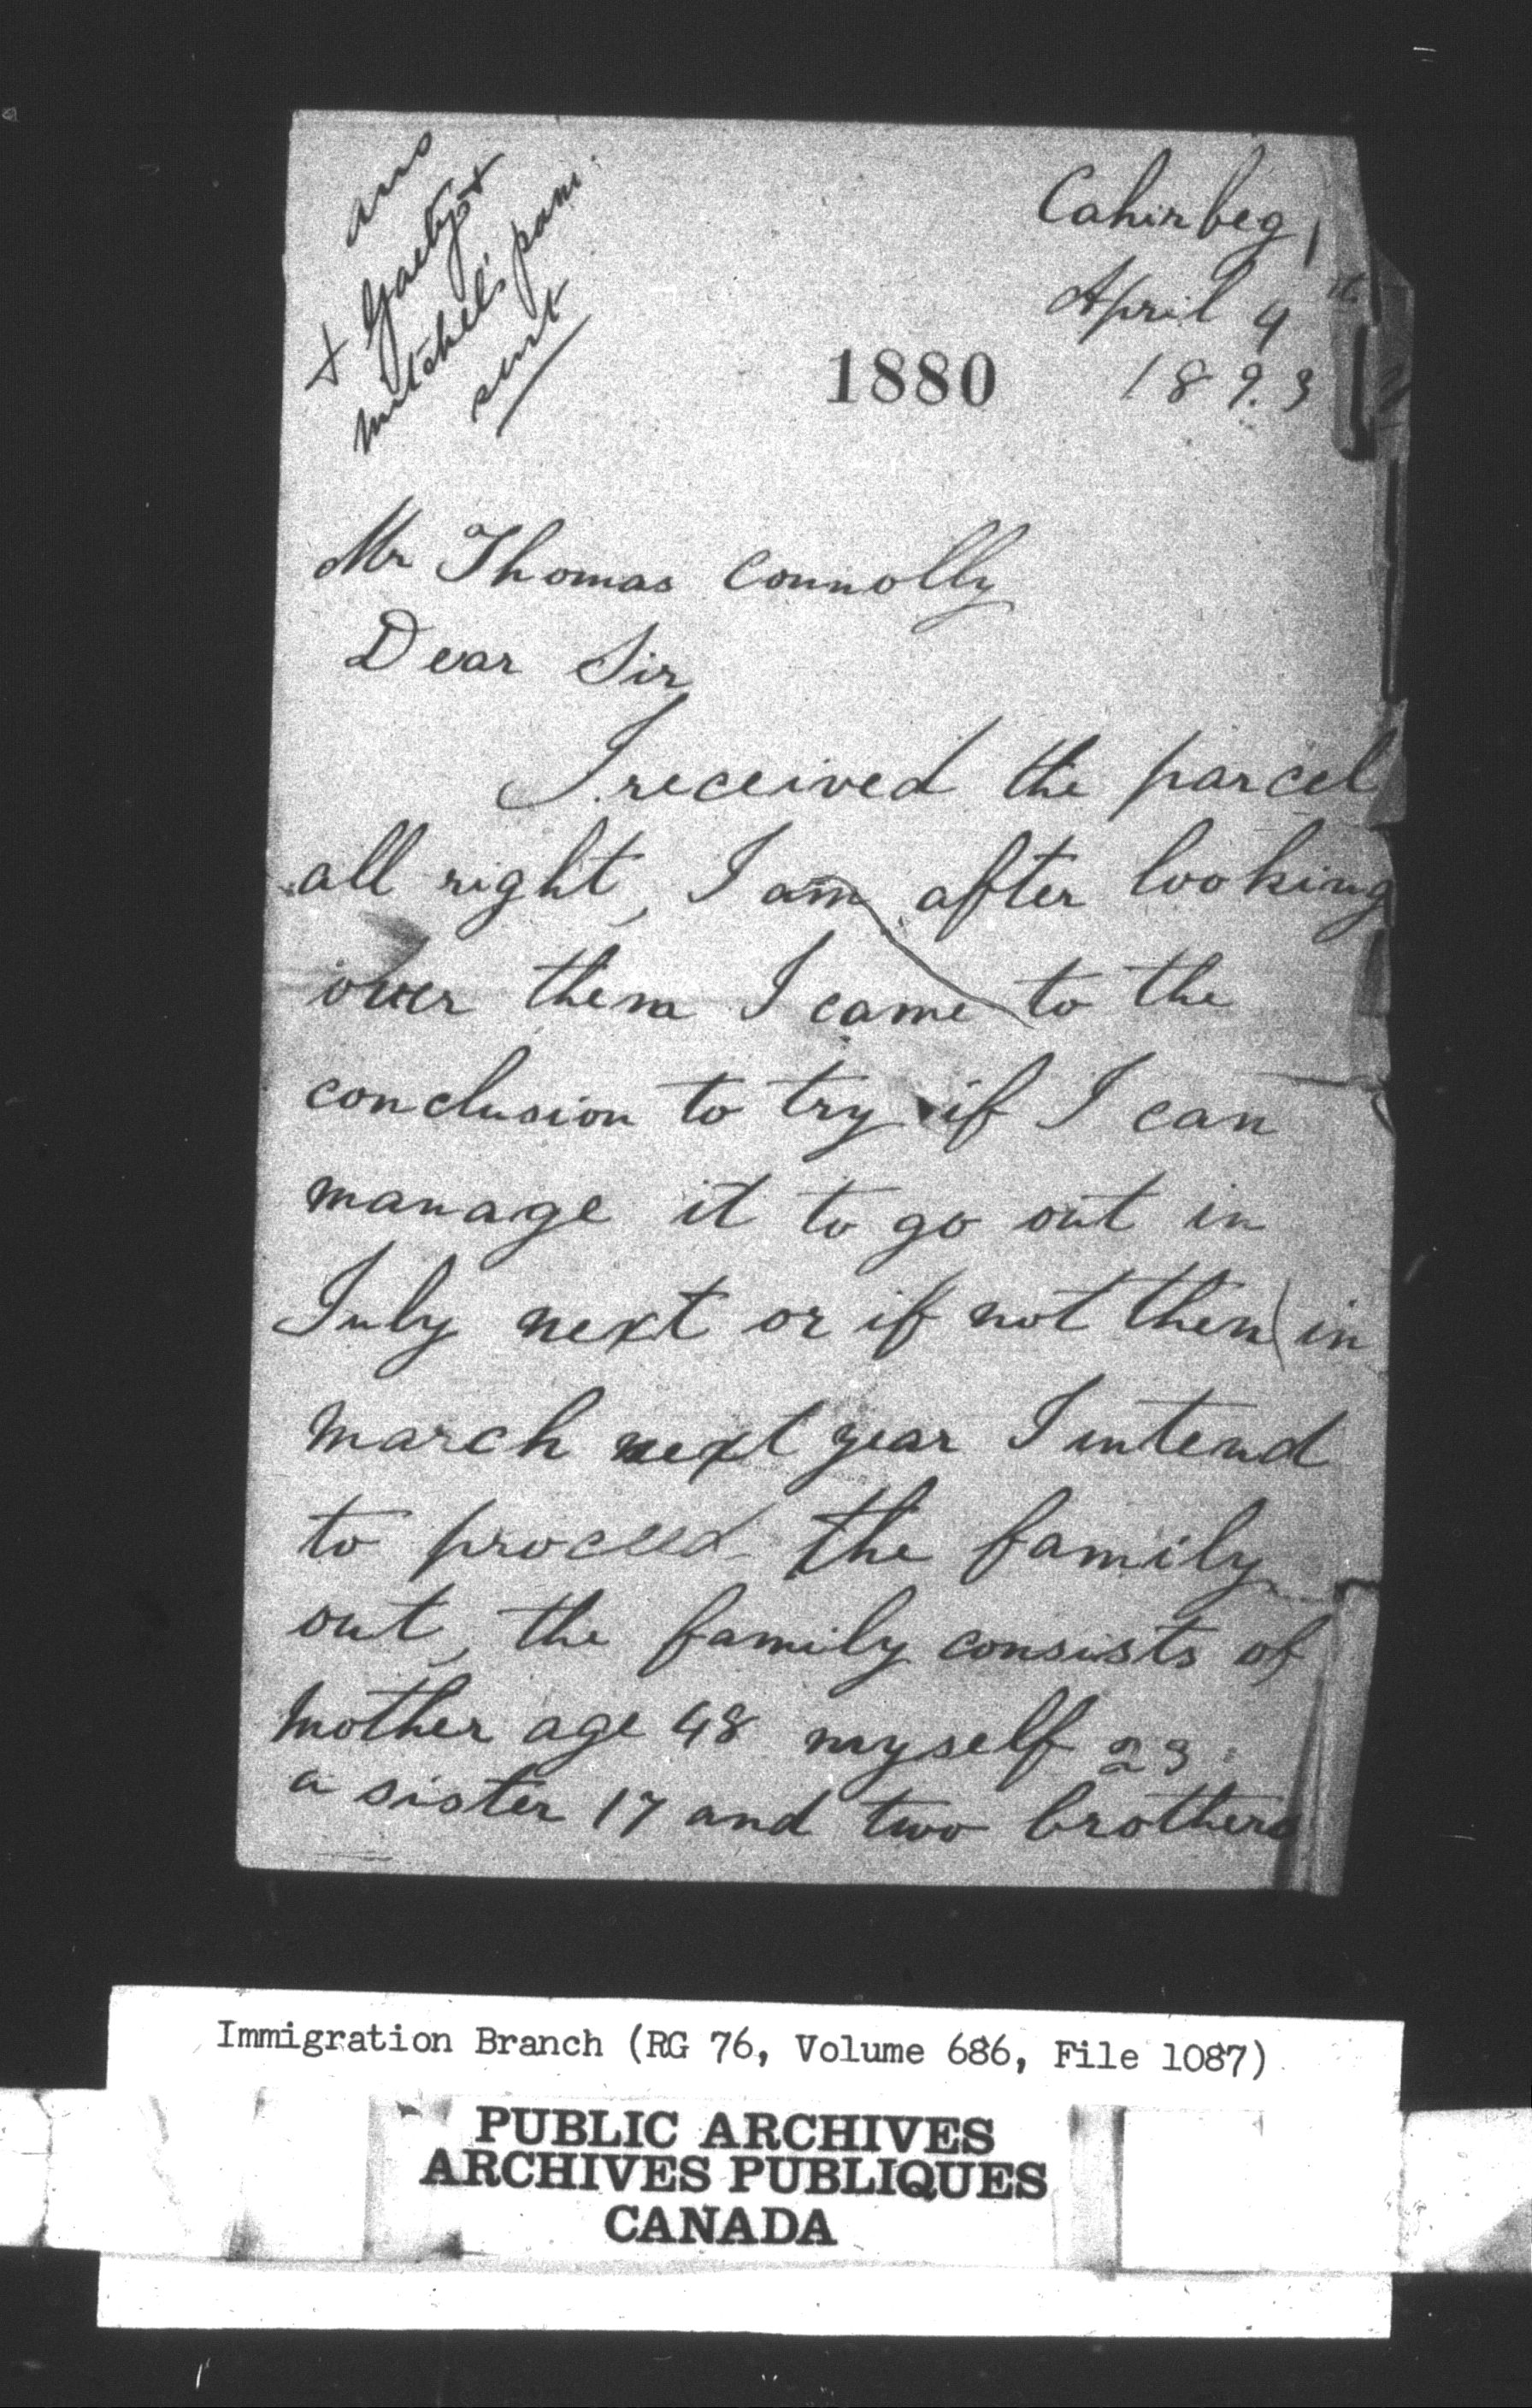 ans
+ Gaetz's +
Mitchel's pam.
sent
Cahirbeg,
April 9th
1880
1893
Mr Thomas Connolly
Dear Sir,
I received the parcel
all right, I am after looking
over them I came to the
conclusion to try if I can
manage it to go out in
July next or if not then in
March next year I intend
to proceed the family
out, the family consists of
Mother age 48 myself 23
a sister 17 and two brothers
Immigration Branch (RG 76, Volume 686, File 1087)
PUBLIC ARCHIVES
ARCHIVES PUBLIQUES
CANADA